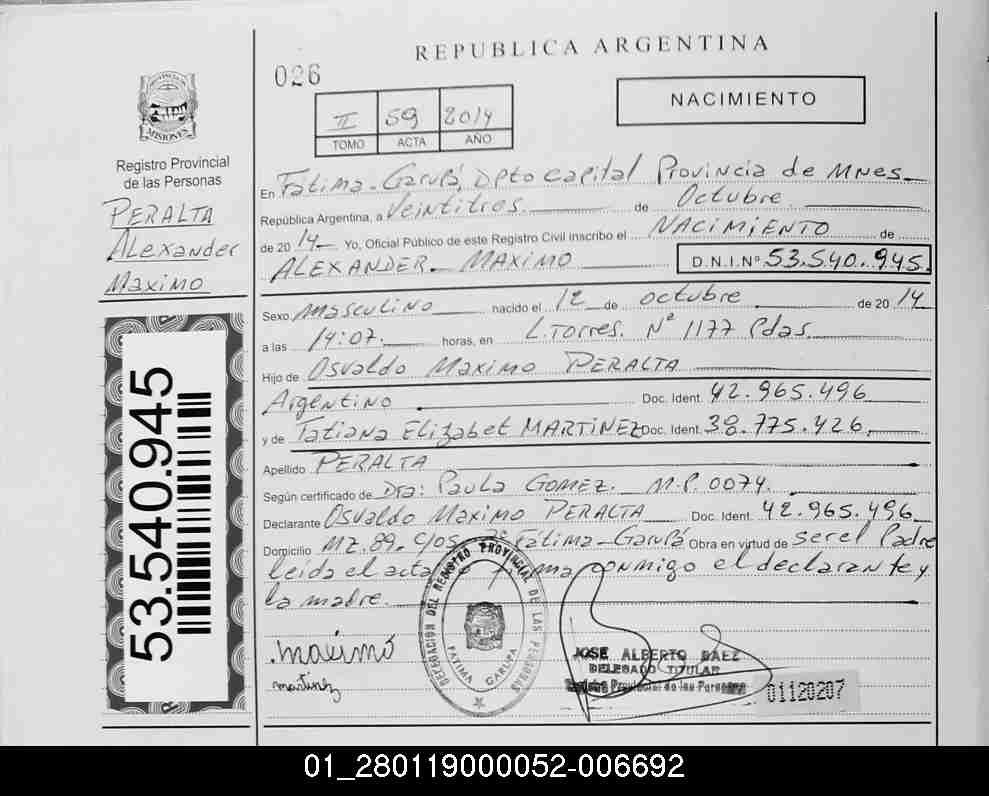 REPUBLICA ARGENTINA
026
II 59 2014
TOMO ACTA AÑO
NACIMIENTO
PROVINCIA DE
MISIONES
Registro Provincial
de las Personas
PERALTA
Alexander
Maximo
53.540.945
En Fátima-Garupá, Dpto Capital Provincia de Mnes
República Argentina, a Veintitres de Octubre
de 2014 Yo, Oficial Público de este Registro Civil inscribo el NACIMIENTO de
ALEXANDER MAXIMO D.N.I.Nº 53.540.945
Sexo Masculino nacido el 12 de octubre de 2014
a las 14:07 horas, en L. Torres. Nº 1177 Pdas.
Hijo de Osvaldo Maximo PERALTA
Argentino Doc. Ident. 42.965.496
y de Tatiana Elizabet MARTINEZ Doc. Ident. 38.775.426
Apellido PERALTA
Según certificado de Dra: Paula GOMEZ. M.P. 0074.
Declarante Osvaldo Maximo PERALTA Doc. Ident. 42.965.496
Domicilio Mz. 89. C/05 Fatima-Garupá Obra en virtud de ser el Padre
leida el acta firma conmigo el declarante y
la madre.
DELEGACION DEL REGISTRO PROVINCIAL DE LAS PERSONAS
FATIMA GARUPA
maximo
martinez
JOSE ALBERTO BAEZ
DELEGADO TITULAR
Registro Provincial de las Personas
01120207
01_280119000052-006692